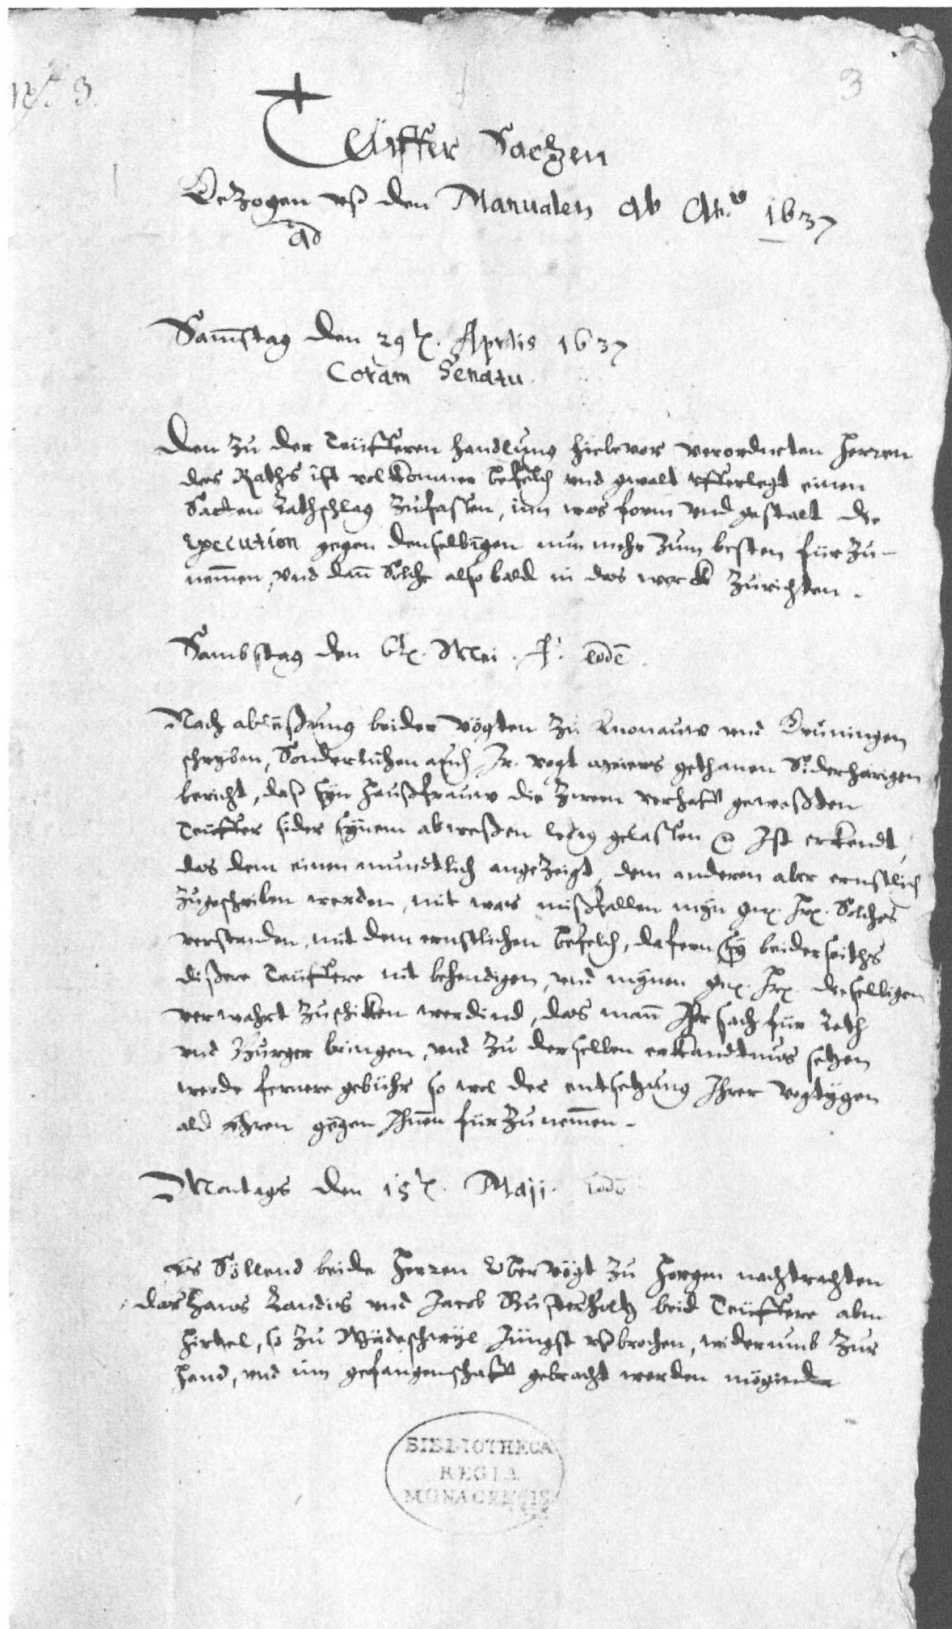 N° 3.
3
Teüffer Sachen
Gezogen uß den Manualen ab Aō. 1637
Samstag den 29t. Aprilis 1637
Coram Senatu.
Den zu der Teüfferen handlung hiebevor verordneten Herren
des Raths ist volkomner befelch und gwalt ufferlegt einen
Satten Rathschlag zufassen, inn was form und gestalt die
Execution gegen denselbigen nun mehr zum besten für zu-
nemmen, und dan Solche also bald in das werck zurichten.
Sambstag den 6t. Mei. eode.
Nach abläsung beider Vögten zu Knonauw und Grüningen
schryben, Sonderlichen auch Jr. Vogt meiers gethanen Siderharigen
bericht, daß syn haußfrauw die Zween verhafft geweßten
Teüffer sider synem abweßen ledig gelassen Ist erkendt,
das dem einen mundtlich angezeigt, dem anderen aber ernstlich
zugeschriben werden, mit was mißfallen myn gn. Hr. Solches
verstanden, mit dem ernstlichen befelch, dafern sy beidersyths
dißere Teüffere nit behendigen, und mynen gn. Hr. dieselbigen
verwahrt zuschikken werdind, das mann Ihr sach für Reth
und Burger bringen, und zu derselben erkandtnus setzen
werde fernere gebühr so wol der entsetzung Ihrer Vogtygen
ald Ehren gegen Ihnen für zu nemmen.
Montags den 15t. Maji. eode
Es Söllend beide Herren Obervögt zu Horgen nachtrachten
das Hans Landis und Jacob Rusterholtz beid Teüffere abm
Hirtzel, so zu Wädeschwyl Jüngst ußbrochen, widerumb zur
hand, und inn gefangenschafft gebracht werden mögind
BIBLIOTHECA
REGIA
MONACENSIS